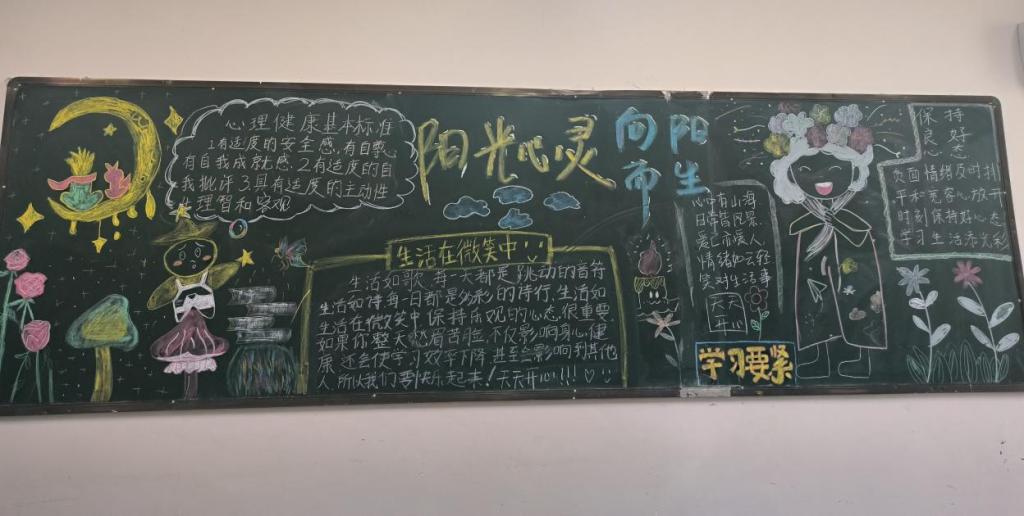 心理健康基本标准
1.有适度的安全感,有自尊,
有自我成就感 2.有适度的自
我批评 3.具有适度的主动性
生理智和客观
阳光心灵
向阳
而生
生活在微笑中
生活如歌,每一天都是跳动的音符
生活如诗每一日都是多彩的诗行.生活如
生活在微笑中,保持乐观的心态很重要
如果你整天愁眉苦脸,不仅影响身心健
康,还会使学习效率下降,甚至会影响到其他
人.所以我们要快乐起来!天天开心!!!
心中有山海
日常皆风景
爱己亦爱人
情绪如云轻
笑对生活事
天天
开心
学习要紧
保持
良好
心态
负面情绪及时抖
平和宽容心放开
时刻保持好心态
学习生活添光彩